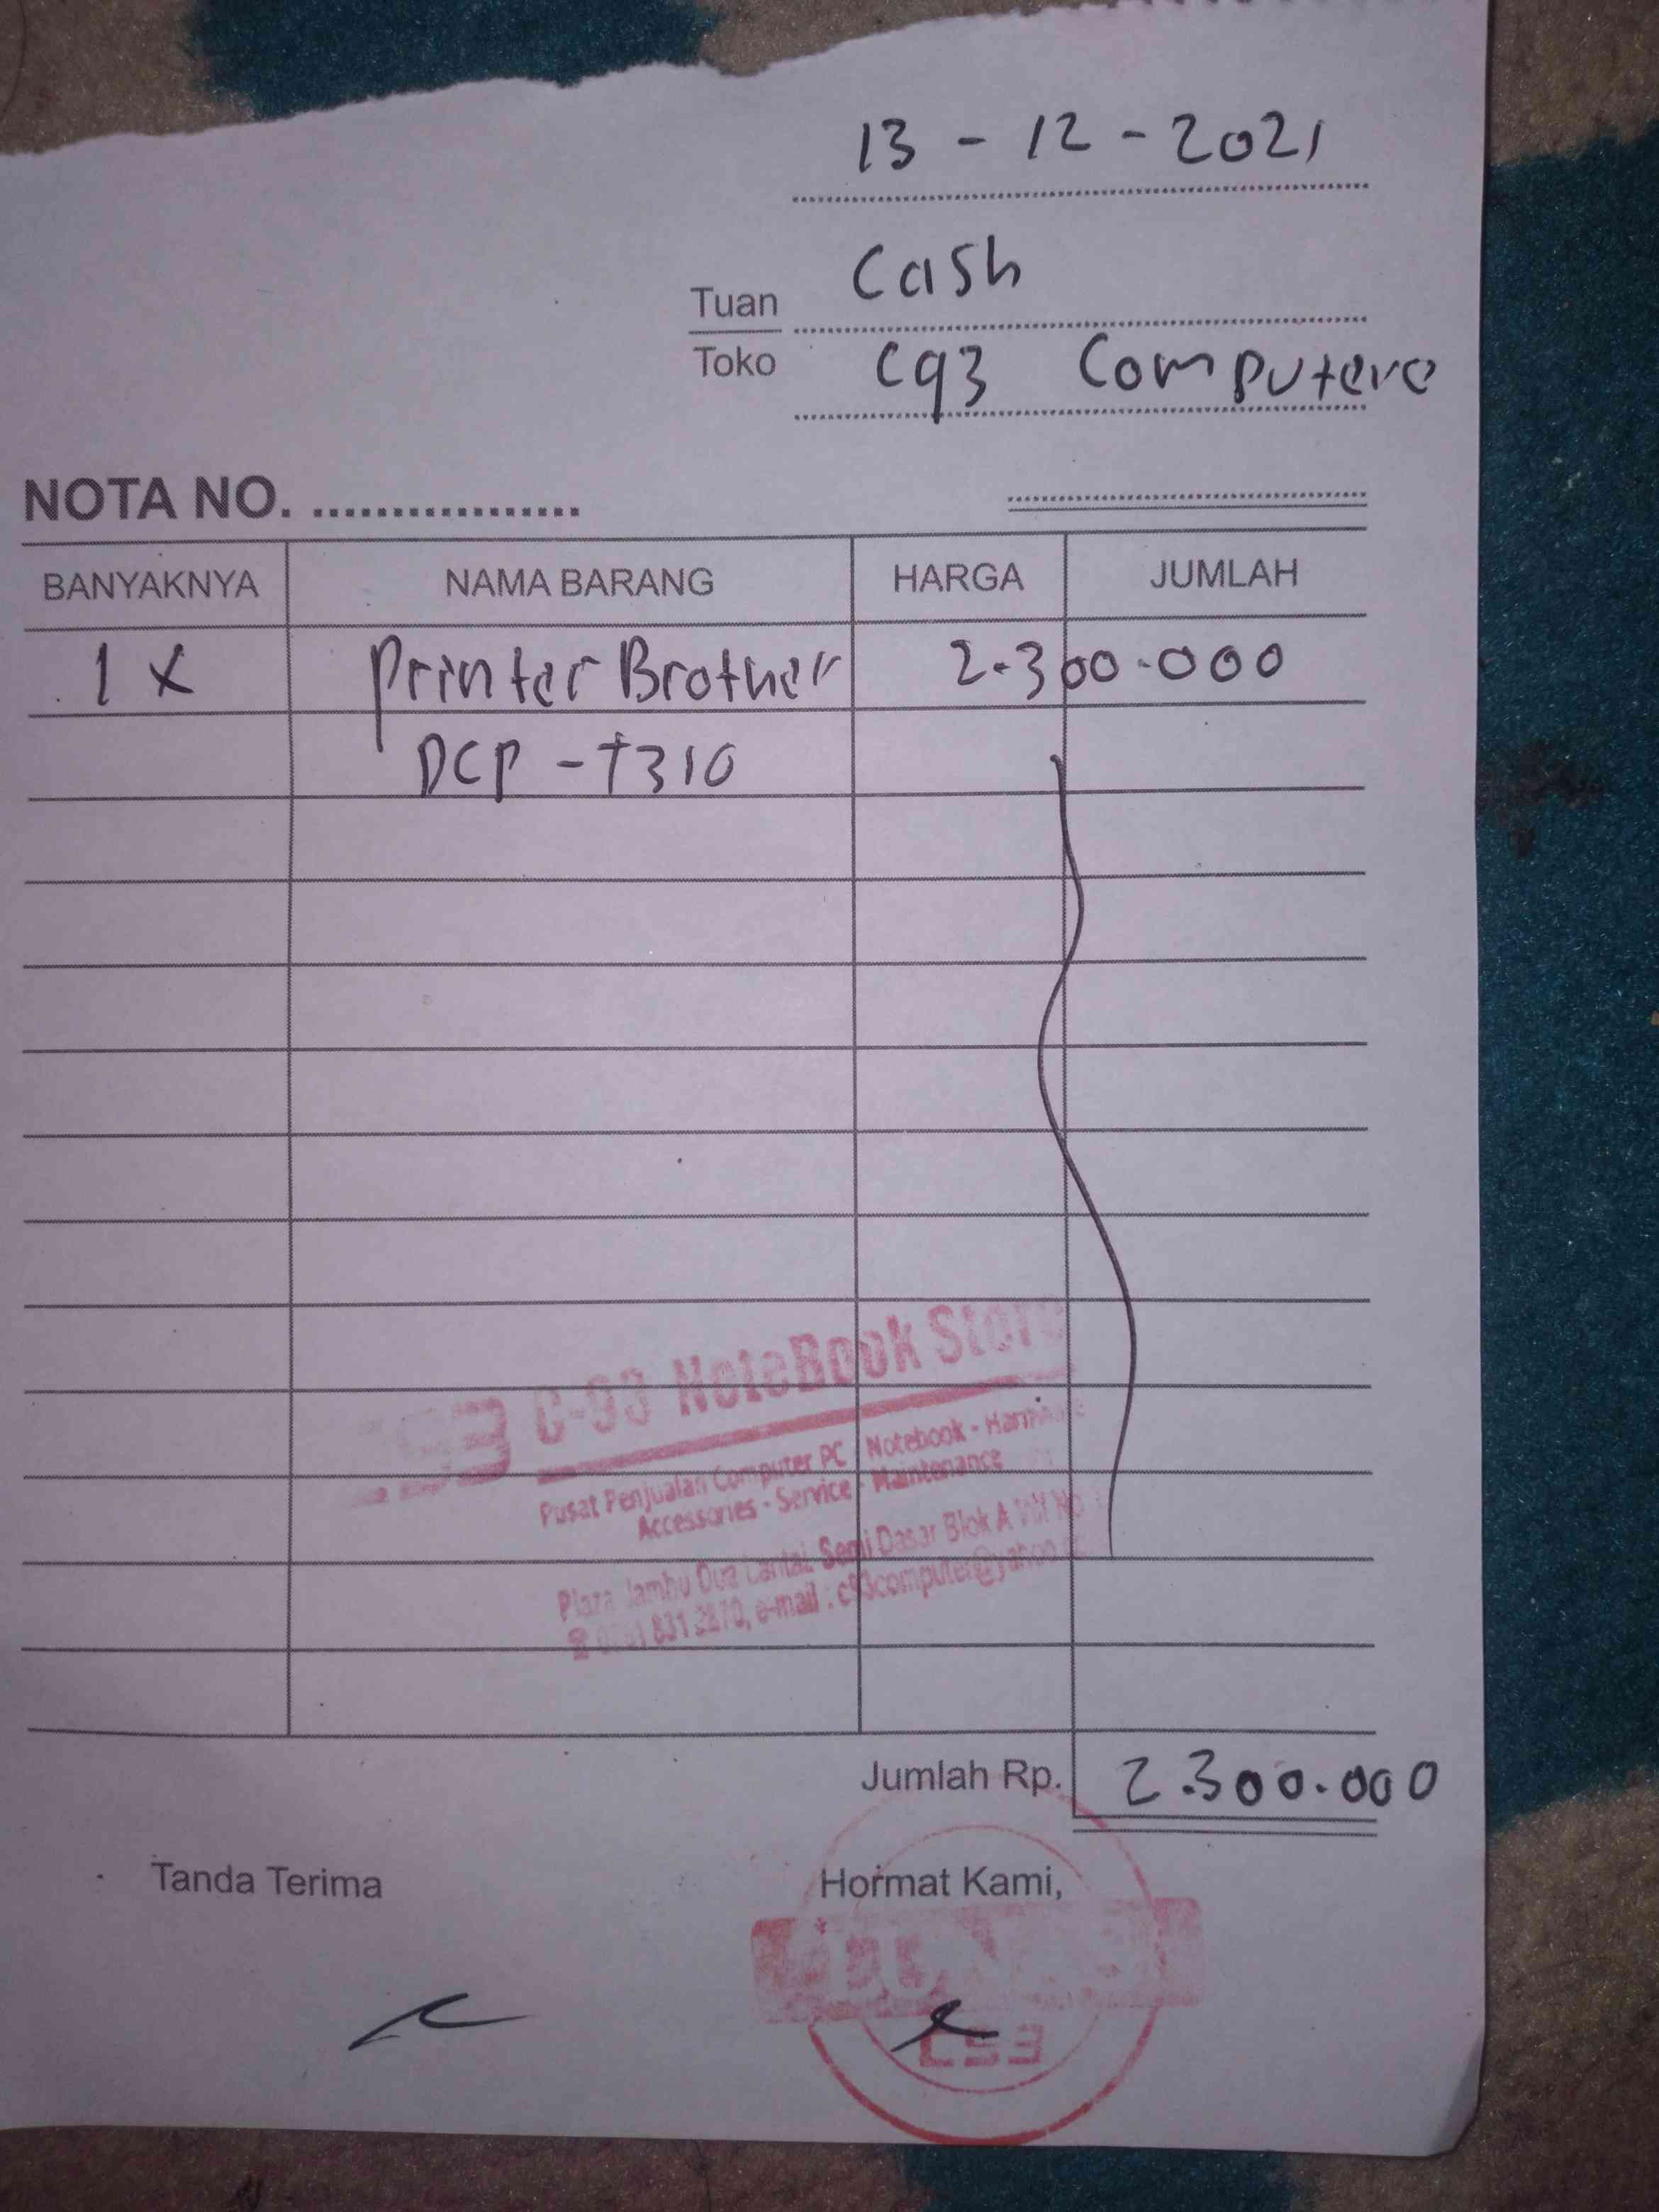 13 - 12 - 2021
Tuan Cash
Toko C93 Computere
NOTA NO. .................
BANYAKNYA NAMA BARANG HARGA JUMLAH
1 X Printer Brother 2.300.000
DCP - T310
C-93 NoteBook Store
Pusat Penjualan Computer PC - Notebook -
Accessories - Service - Maintenance
Plaza Jambu Dua Lantai Semi Dasar Blok A
e-mail : c93computer@yahoo
Jumlah Rp. 2.300.000
Tanda Terima Hormat Kami,
C93